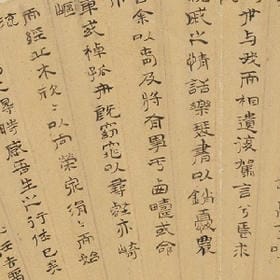 世與我而相遺復駕言兮焉求
戚之情話樂琴書以銷憂農
告余以春及將有事乎西疇或命
車或棹孤舟既窈窕以尋壑亦崎
嶇而經丘木欣〻以向榮泉涓〻而始
得時感吾生之行休已矣